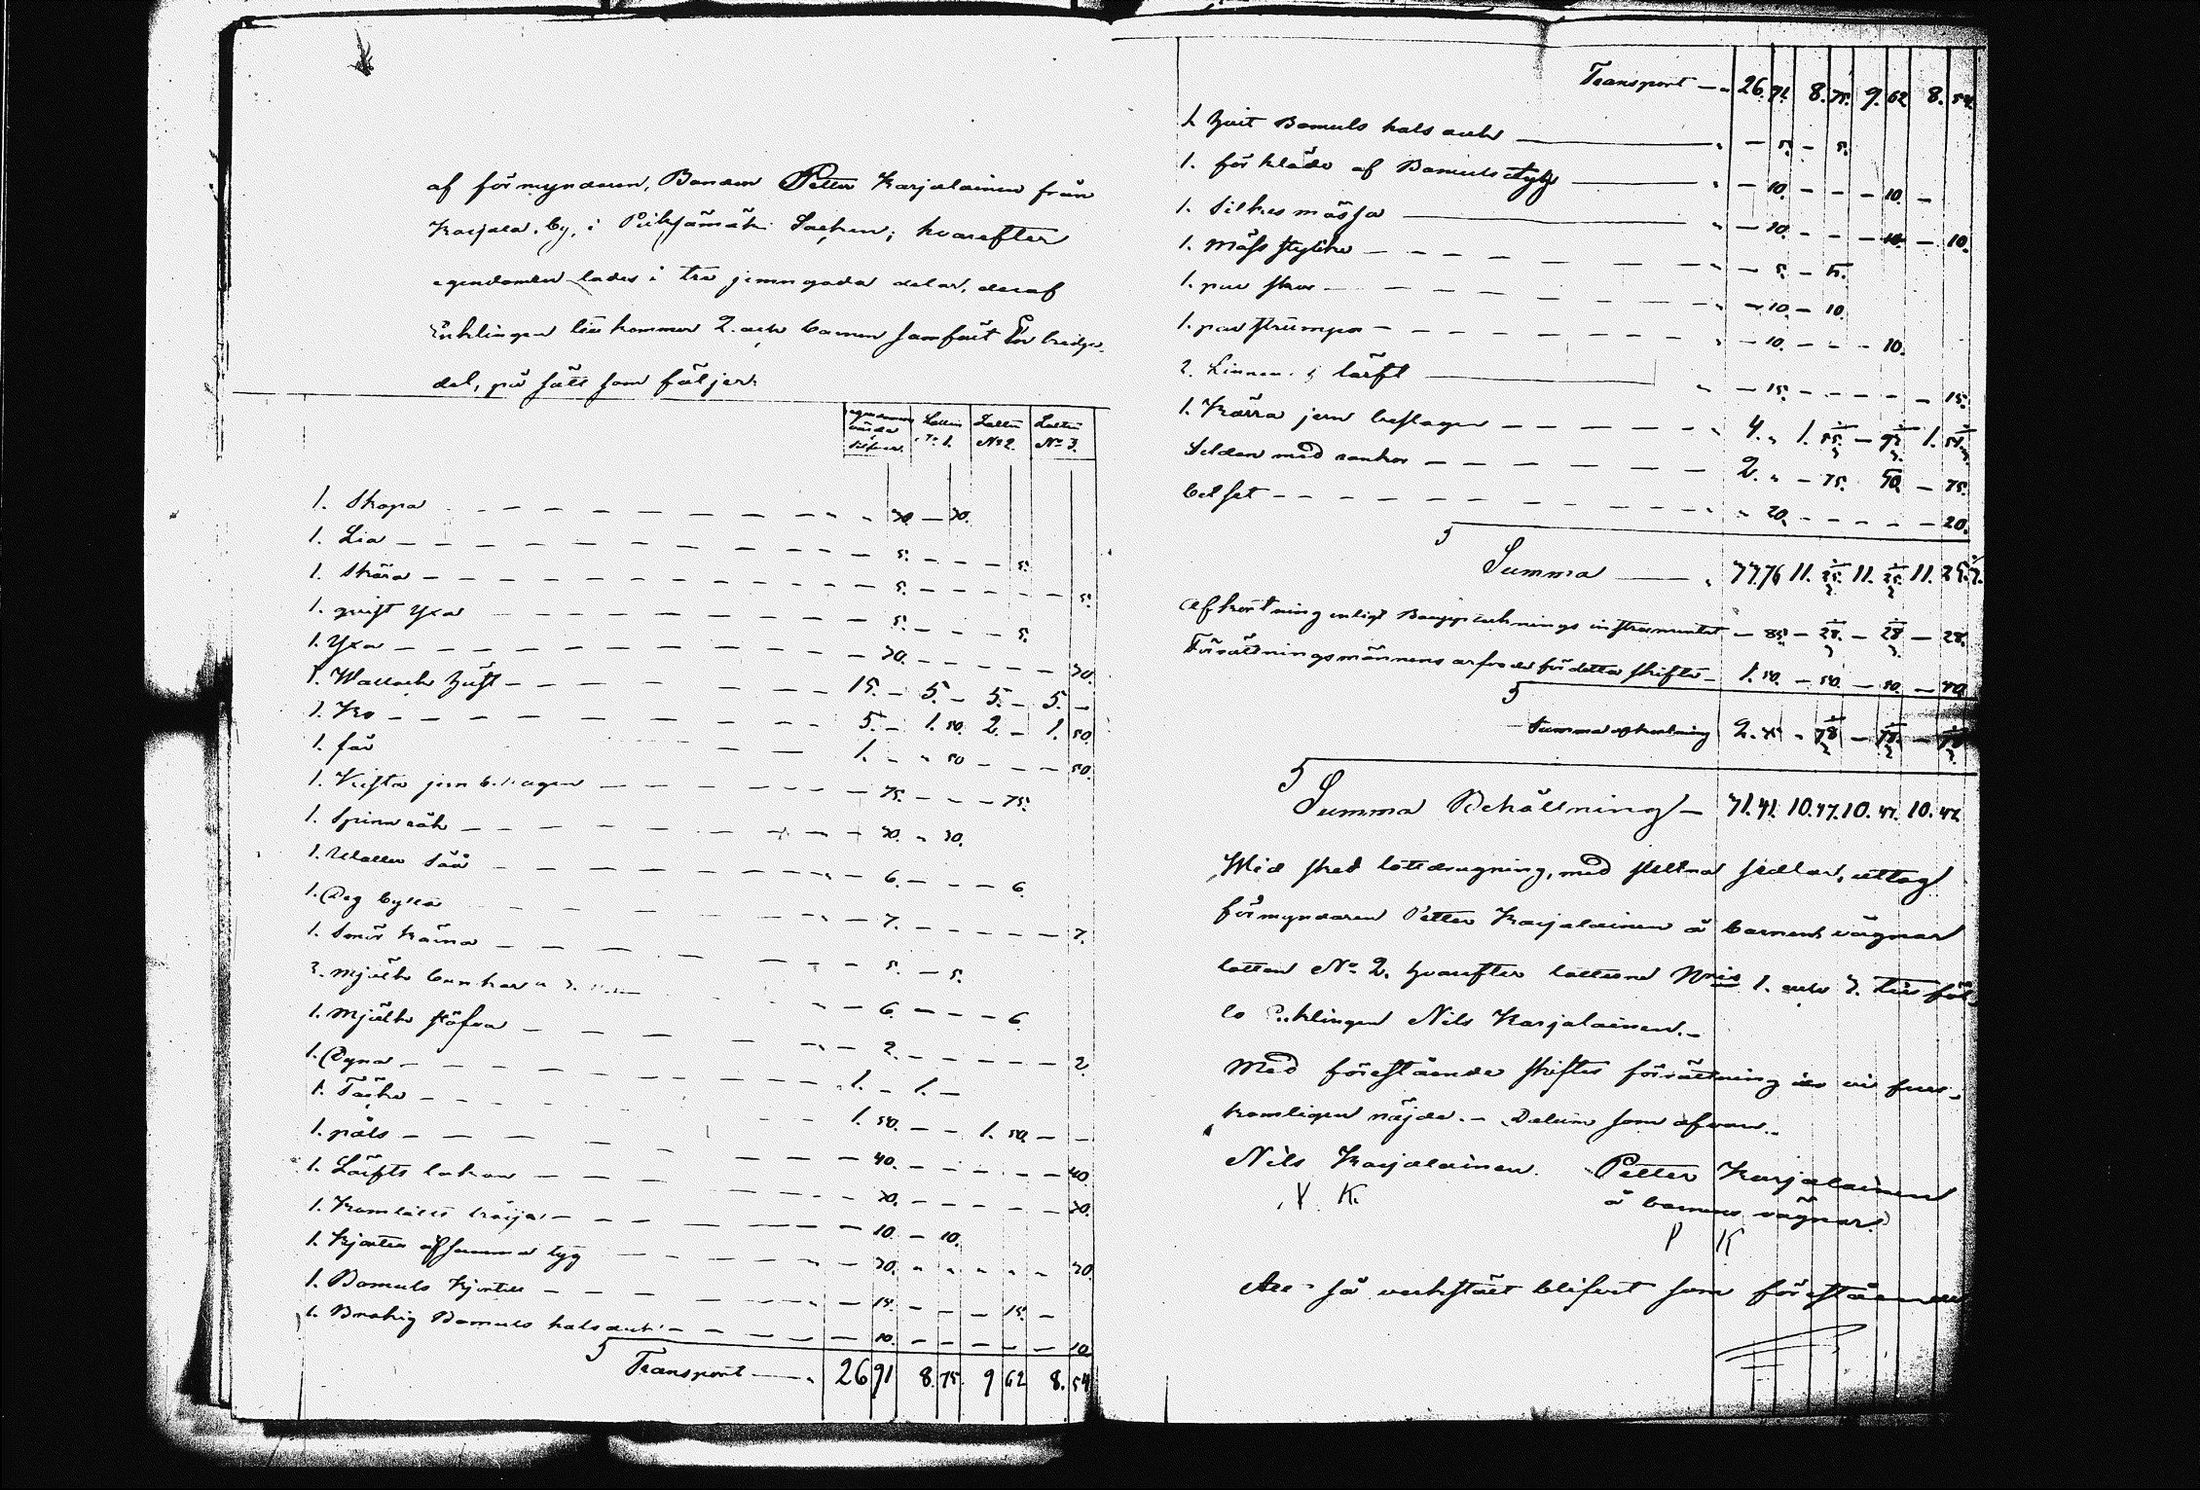 af förmyndaren, Bonden Petter Karjalainen från
Karjala by, i Pieksämäki Socken; hvarefter
egendomen lades i tre jemngoda delar, deraf
Enklingen tillkommer 2. och barnen samfält En tredje-
del, på sätt som följer:
Egendomens värde Silfver. Lotten N:o 1. Lotten N:o 2. Lotten N:o 3.
1. Skopa — 30. — 30.
1. Lia — 5. — 5.
1. Skära — 5. — 5.
1. qvist Yxa — 5. — 5.
1. Yxa — 30. — 30.
1. Wallack häst — 15. — 5. — 5. — 5. —
1. Ko — 5. — 1. 50. 2. — 1. 50.
1. får — 1. — 50 — 50.
1. Kista jern beslagen — 75. — 75.
1. Spinnråk — 30. — 30.
1. såå — 6. — 6.
1. Deg bytta — 7. — 7.
1. Smör kärna — 5. — 5.
3. mjölk bunkar — 6. — 6.
1. mjölk stäfva — 2. — 2
1. Dyna — 1. — 1. —
1. Täcke — 1. 50. — 1. 50 —
1. päls — 40. — 40.
1. Lärfts lakan — 30. — 30.
1. tröja — 10. — 10.
1. Kjortel af samma tyg — 30. — 30
1. Bomuls Kjortel — 15. — 15. —
1. Brokig Bomuls halsduk — 10. — 10
Transport — 26 91 8. 75. 9 62 8. 54
Transport — 26. 91. 8. 75. 9. 62 8. 54.
1 hvit Bomuls halsduk — 5. — 5.
1. förkläde af Bomulstyg — 10. — 10. —
1. Silkes mössa — 10. — 10.
1. Möss stycke — 5. — 5.
1. par skor — 10. — 10.
1. par strumpor — 10. — 10.
2. Linnen. lärft — 15. — 15.
1. Kärra jern beslagen — 4. 1.
Seldon med rankor — 2. — 75. 50. — 75.
betset — 20. — 20.
Summa — 11. 11. 11.
Afkortning enligt Boupptecknings instrumentet — 85. — 28. — 28 — 28.
Förrättningsmännens arfvode för detta skifte — 1. 50. — 50. — 50. — 50
Summa afkortning 2. 35
Summa Behållning — 31. 41. 10. 47. 10. 47. 10. 47.
Wid sked lottdragning, med slutna sedlar, uttog
förmyndaren Petter Karjalainen å barnens vägnar
lotten N:o 2. hvarefter lotterne N:ris 1. och 3. tillföl-
lo Enklingen Nils Karjalainen. —
Med förestående skiftes förrättning äro vi full-
komligen nöjde. — Datum som ofvan. —
Nils Karjalainen. Petter Karjalainen
N. K. å barnens vägnar
P K
Att så verkstält blifvit som förestående